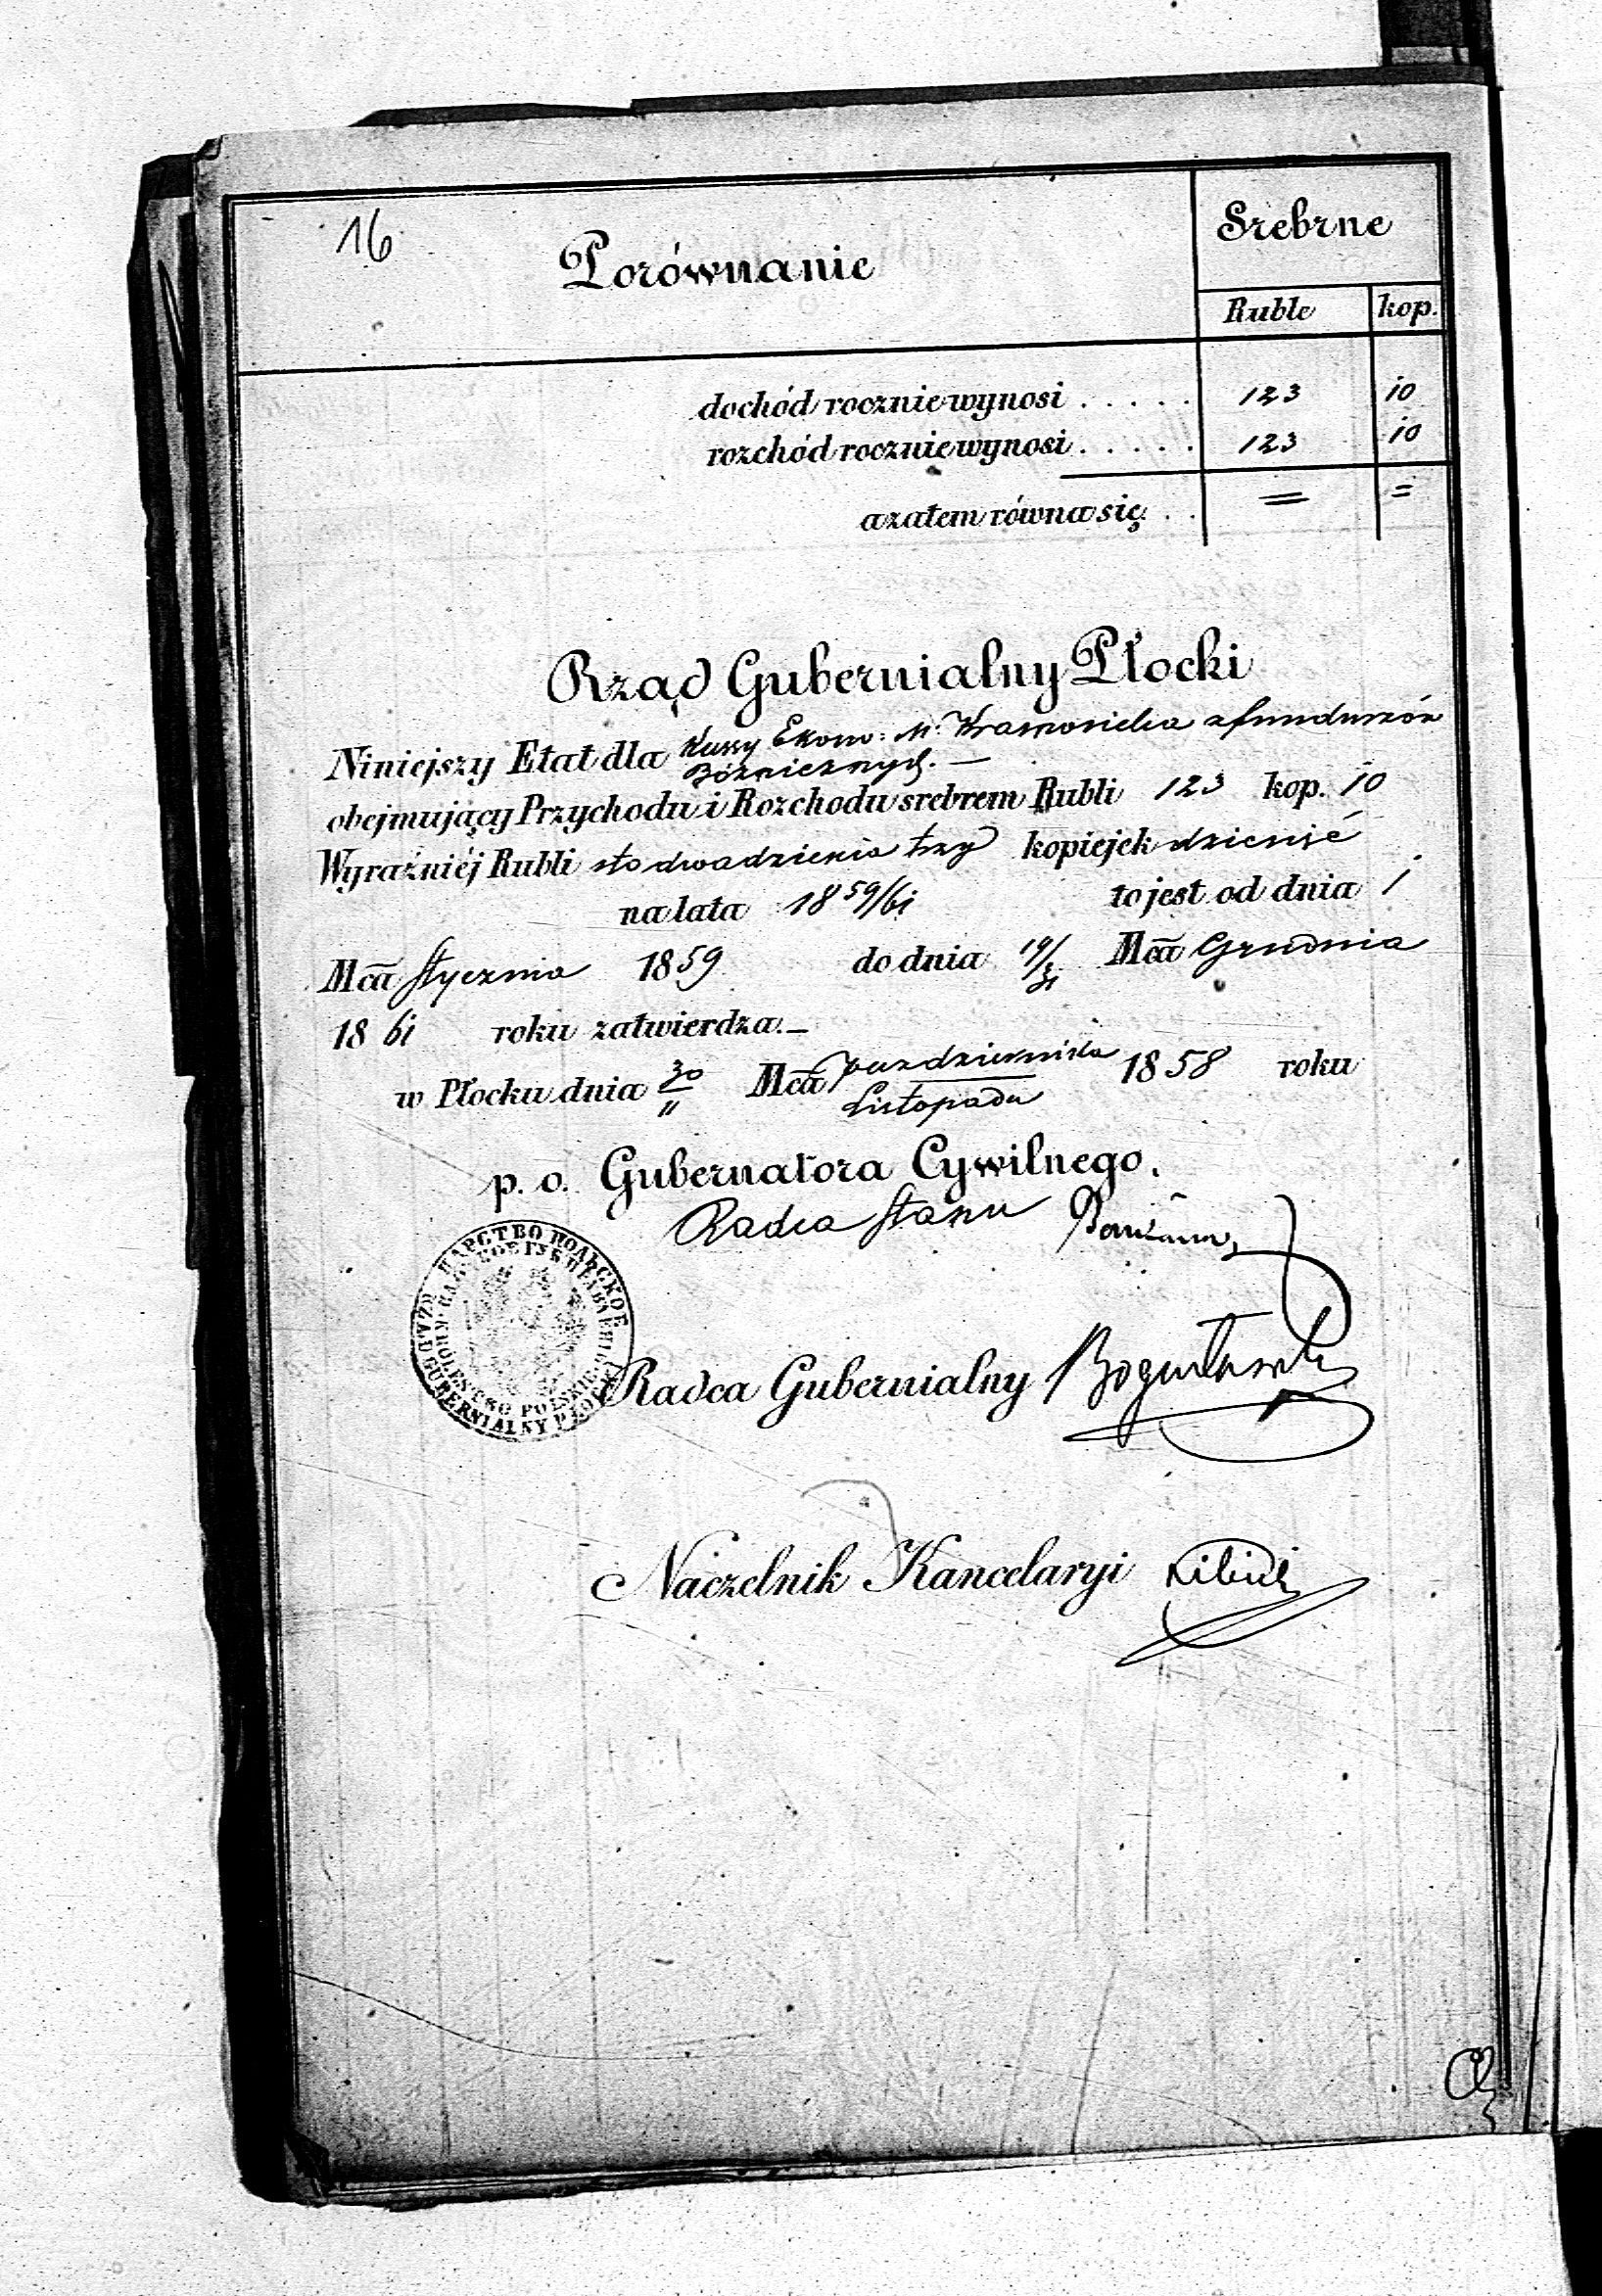 16
Porównanie
Srebrne
Ruble kop.
dochód rocznie wynosi ..... 123 10
rozchód rocznie wynosi ..... 123 10
a zatem równa się .. = =
Rząd Gubernialny Płocki
Niniejszy Etat dla Kassy Ekono: M. Krasnosielca z funduszów
Bóżnicznych. —
obejmujący Przychodu i Rozchodu srebrem Rubli 123 kop. 10
Wyraźniéj Rubli sto dwadzieścia trzy kopiejek dziesięć
na lata 1859/61 to jest od dnia 1
Mca Stycznia 1859 do dnia 19/31 Mca Grudnia
1861 roku zatwierdza. —
w Płocku dnia 30/11 Mca Października 1858 roku
Listopada
p. o. Gubernatora Cywilnego.
Radca Stanu
ЦАРСТВО ПОЛЬСКОЕ
RZĄD GUBERNIALNY PŁOCKI
KRÓLESTWO POLSKIE
Radca Gubernialny Bogusławski
Naczelnik Kancelaryi